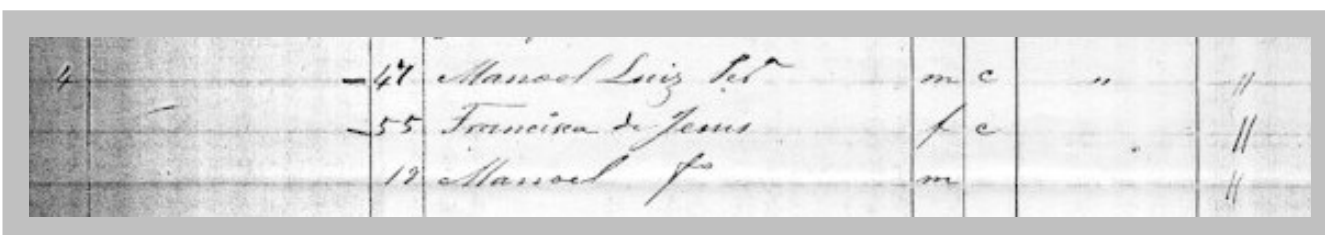 4 47 Manoel Luiz m c " "
55 Francisca de Jesus f c "
12 Manoel fo m "